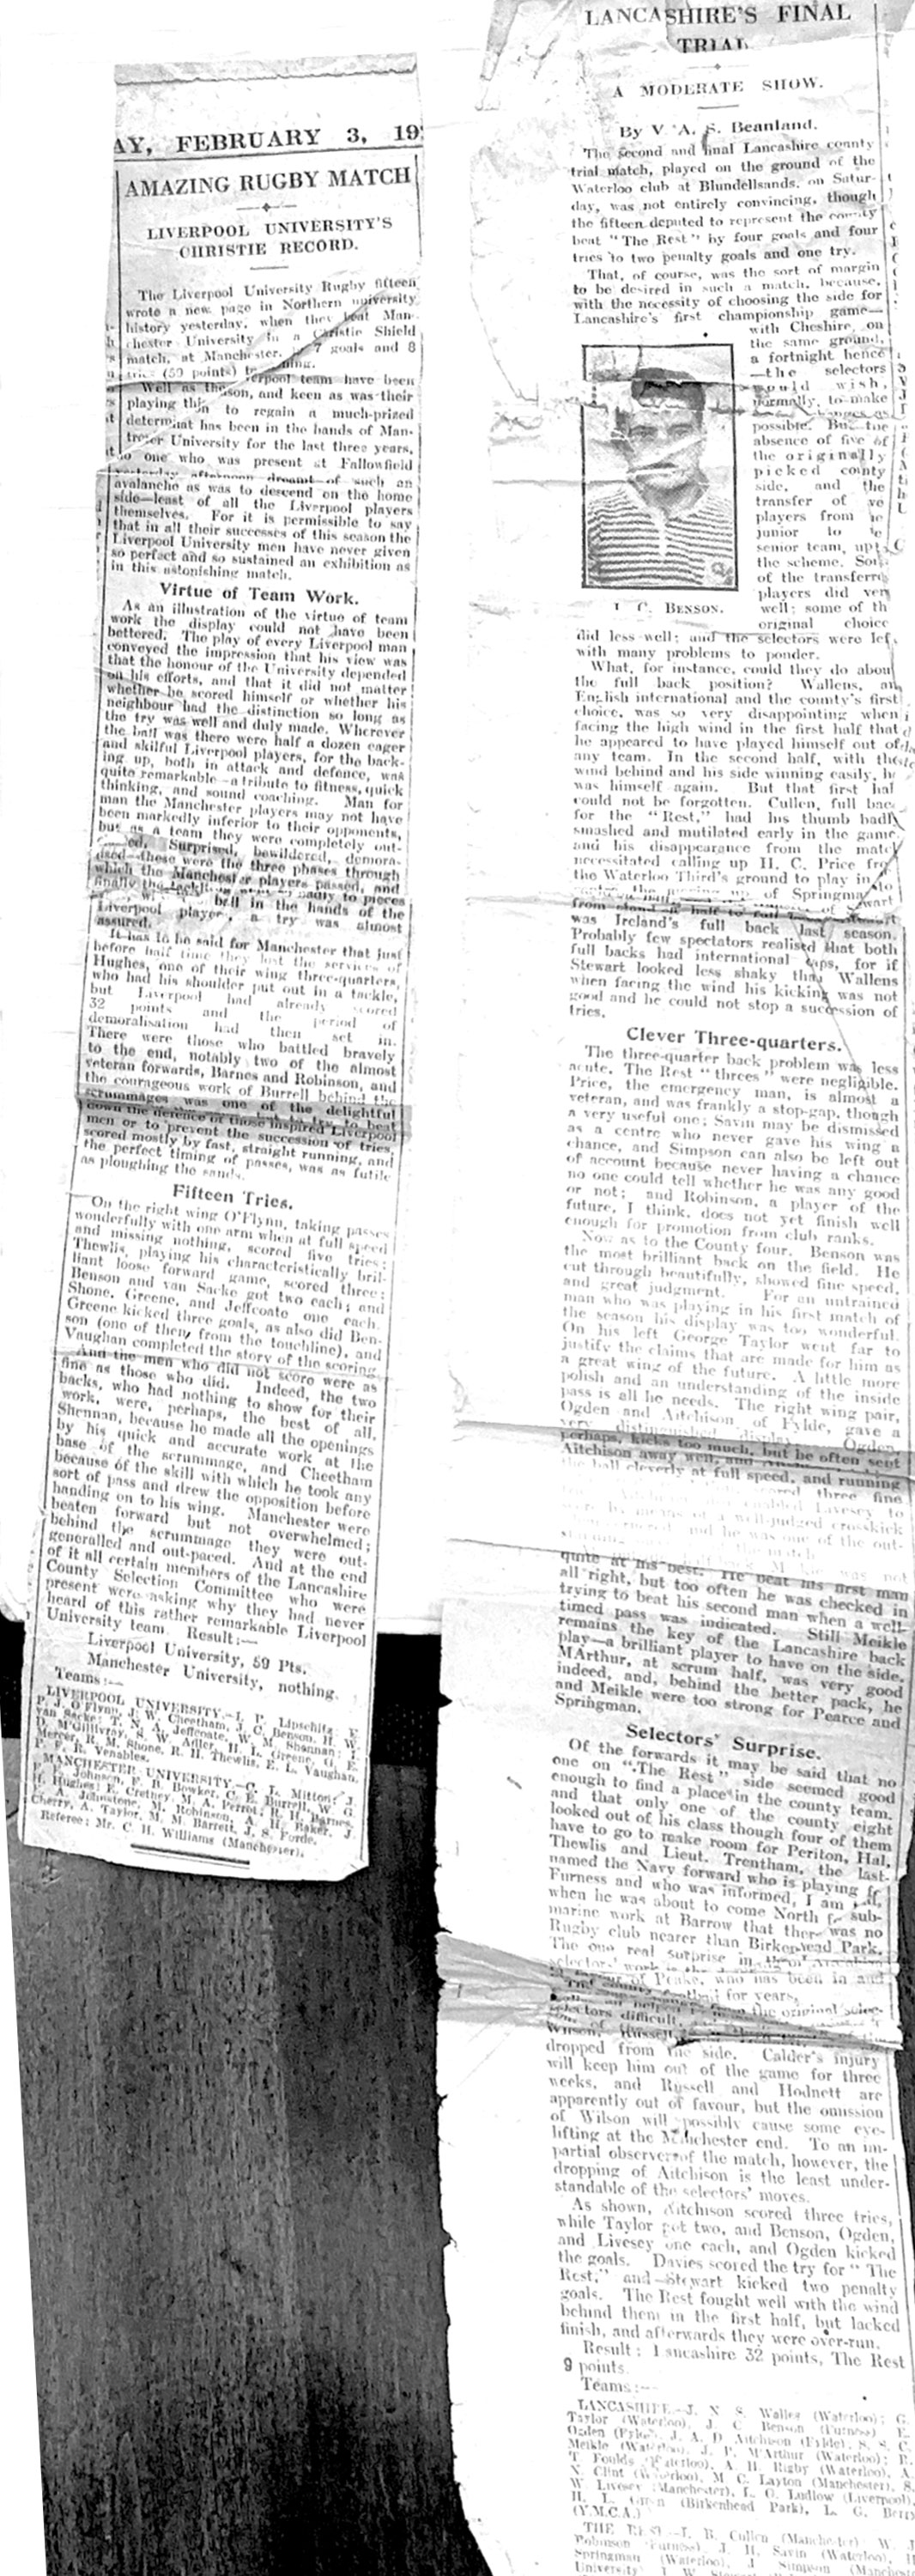 AY, FEBRUARY 3, 19
AMAZING RUGBY MATCH
LIVERPOOL UNIVERSITY'S
CHRISTIE RECORD.
The Liverpool University Rugby fifteen
wrote a new page in Northern university
history yesterday, when they beat Man-
chester University in a Christie Shield
match, at Manchester, by 7 goals and 8
tries (59 points) to
Well as the erpool team have been
playing this son, and keen as was their
determinat to regain a much-prized
has been in the hands of Man-
University for the last three years,
no one who was present at Fallowfield
yesterday afternoon dreamt of such an
avalanche as was to descend on the home
side—least of all the Liverpool players
themselves. For it is permissible to say
that in all their successes of this season the
Liverpool University men have never given
so perfect and so sustained an exhibition as
in this astonishing match.
Virtue of Team Work.
As an illustration of the virtue of team
work the display could not have been
bettered. The play of every Liverpool man
conveyed the impression that his view was
that the honour of the University depended
on his efforts, and that it did not matter
whether he scored himself or whether his
neighbour had the distinction so long as
the try was well and duly made. Wherever
the ball was there were half a dozen eager
and skilful Liverpool players, for the back-
ing up, both in attack and defence, was
quite remarkable—a tribute to fitness, quick
thinking, and sound coaching. Man for
man the Manchester players may not have
been markedly inferior to their opponents,
but as a team they were completely out-
Surprised, bewildered, demora-
lised—these were the three phases through
which the Manchester players passed, and
finally the tackling went badly to pieces
ball in the hands of the
Liverpool player, a try was almost
assured.
It has to be said for Manchester that just
before half time they lost the services of
Hughes, one of their wing three-quarters,
who had his shoulder put out in a tackle,
but Liverpool had already scored
32 points and the period of
demoralisation had then set in.
There were those who battled bravely
to the end, notably two of the almost
veteran forwards, Barnes and Robinson, and
the courageous work of Burrell behind the
scrummages was one of the delightful
down the defence of those inspired Liverpool
men or to prevent the succession of tries,
scored mostly by fast, straight running, and
the perfect timing of passes, was as futile
as ploughing the sands.
Fifteen Tries.
On the right wing O'Flynn, taking passes
wonderfully with one arm when at full speed
and missing nothing, scored five tries;
Thewlis, playing his characteristically bril-
liant loose forward game, scored three;
Benson and van Sacke got two each; and
Shone, Greene, and Jeffcoate one each.
Greene kicked three goals, as also did Ben-
son (one of them from the touchline), and
Vaughan completed the story of the scoring.
And the men who did not score were as
fine as those who did. Indeed, the two
backs, who had nothing to show for their
work, were, perhaps, the best of all,
Shennan, because he made all the openings
by his quick and accurate work at the
base of the scrummage, and Cheetham
because of the skill with which he took any
sort of pass and drew the opposition before
handing on to his wing. Manchester were
beaten forward but not overwhelmed;
behind the scrummage they were out-
generalled and out-paced. And at the end
of it all certain members of the Lancashire
County Selection Committee who were
present were asking why they had never
heard of this rather remarkable Liverpool
University team. Result:—
Liverpool University, 59 Pts.
Manchester University, nothing.
Teams:—
LIVERPOOL UNIVERSITY.—I. P. Lipschitz; F.
P. J. O'Flynn, J. W. Cheetham, J. C. Benson, H. W.
van Sacke; T. N. A. Jeffcoate, W. M. Shannan; I.
D. M'Gillivray, S. W. Adler, H. L. Greene, G. E.
Mercer, R. M. Shone, R. H. Thewlis, E. L. Vaughan,
P. R. Venables.
MANCHESTER UNIVERSITY.—G. L. Mitton; J.
F. E. Johnson, F. B. Bowker, C. E. Burrell, W. G.
H. Hughes; E. Cretney, M. A. Perrot; R. H. Barnes,
A. Johnstone, M. Robinson, A. H. Baker, J.
Cherry, A. Taylor, M. M. Barrett, J. S. Forde.
Referee: Mr. C. H. Williams (Manchester).
LANCASHIRE'S FINAL
TRIAL
A MODERATE SHOW.
By V. A. S. Beanland.
The second and final Lancashire county
trial match, played on the ground of the
Waterloo club at Blundellsands, on Satur-
day, was not entirely convincing, though
the fifteen deputed to represent the county
beat "The Rest" by four goals and four
tries to two penalty goals and one try.
That, of course, was the sort of margin
to be desired in such a match, because,
with the necessity of choosing the side for
Lancashire's first championship game—
with Cheshire, on
the same ground,
a fortnight hence
—the selectors
would wish,
normally, to make
changes as
possible. But the
absence of five of
the originally
picked county
side, and the
transfer of
players from
junior to
senior team, upt
the scheme. Som
of the transferred
players did very
well; some of th
original choice
J. C. BENSON.
did less well; and the selectors were lef
with many problems to ponder.
What, for instance, could they do abou
the full back position? Wallens, an
English international and the county's first
choice, was so very disappointing when
facing the high wind in the first half that
he appeared to have played himself out of
any team. In the second half, with the
wind behind and his side winning easily, he
was himself again. But that first hal
could not be forgotten. Cullen, full bac
for the "Rest," had his thumb badly
smashed and mutilated early in the game,
and his disappearance from the match
necessitated calling up H. C. Price fro
the Waterloo Third's ground to play in
of Springma
from stand-off half to full
was Ireland's full back last season.
Probably few spectators realised that both
full backs had international caps, for if
Stewart looked less shaky than Wallens
when facing the wind his kicking was not
good and he could not stop a succession of
tries.
Clever Three-quarters.
The three-quarter back problem was less
acute. The Rest "threes" were negligible.
Price, the emergency man, is almost a
veteran, and was frankly a stop-gap, though
a very useful one; Savin may be dismissed
as a centre who never gave his wing a
chance, and Simpson can also be left out
of account because never having a chance
no one could tell whether he was any good
or not; and Robinson, a player of the
future, I think, does not yet finish well
enough for promotion from club ranks.
Now as to the County four. Benson was
the most brilliant back on the field. He
cut through beautifully, showed fine speed,
and great judgment. For an untrained
man who was playing in his first match of
the season his display was too wonderful.
On his left George Taylor went far to
justify the claims that are made for him as
a great wing of the future. A little more
polish and an understanding of the inside
pass is all he needs. The right wing pair,
Ogden and Aitchison, of Fylde, gave a
very distinguished display. Ogden,
perhaps, kicks too much, but he often sent
Aitchison away well, and
the ball cleverly at full speed, and running
scored three fine
Livesey to
by means of a well-judged crosskick
and he was one of the out-
was not
quite at his best. He beat his first man
all right, but too often he was checked in
trying to beat his second man when a well-
timed pass was indicated. Still Meikle
remains the key of the Lancashire back
play—a brilliant player to have on the side.
M'Arthur, at scrum half, was very good
indeed, and, behind the better pack, he
and Meikle were too strong for Pearce and
Springman.
Selectors' Surprise.
Of the forwards it may be said that no
one on "The Rest" side seemed good
enough to find a place in the county team,
and that only one of the county eight
looked out of his class though four of them
have to go to make room for Periton, Hal,
Thewlis and Lieut. Trentham, the last-
named the Navy forward who is playing f
Furness and who was informed, I am
when he was about to come North for sub-
marine work at Barrow that there was no
Rugby club nearer than Birkenhead Park.
The one real surprise in
selectors' work is the
of Peake, who has been in and
county football for years.
from the original selec-
selectors difficult.
Wilson, Russell,
dropped from the side. Calder's injury
will keep him out of the game for three
weeks, and Russell and Hodnett are
apparently out of favour, but the omission
of Wilson will possibly cause some eye-
lifting at the Manchester end. To an im-
partial observer of the match, however, the
dropping of Aitchison is the least under-
standable of the selectors' moves.
As shown, Aitchison scored three tries,
while Taylor got two, and Benson, Ogden,
and Livesey one each, and Ogden kicked
the goals. Davies scored the try for "The
Rest," and Stewart kicked two penalty
goals. The Rest fought well with the wind
behind them in the first half, but lacked
finish, and afterwards they were over-run.
Result: Lancashire 32 points, The Rest
9 points.
Teams:—
LANCASHIRE.—J. N. S. Wallen (Waterloo); G.
Taylor (Waterloo), J. C. Benson (Furness) E.
Ogden (Fylde), J. A. D. Aitchison (Fylde), S. S. C.
Meikle (Waterloo), J. P. M'Arthur (Waterloo); P.
T. Foulds (Waterloo), A. H. Rigby (Waterloo), A.
N. Clint (Waterloo), M. C. Layton (Manchester), S.
W. Livesey (Manchester), L. O. Ludlow (Liverpool),
H. L. Green (Birkenhead Park), L. G. Berry
(Y.M.C.A.)
THE REST.—J. B. Cullen (Manchester) W. J.
Robinson (Furness), J. H. Savin (Waterloo), H
Springman (Waterloo), J. Simpson (Manches
University)